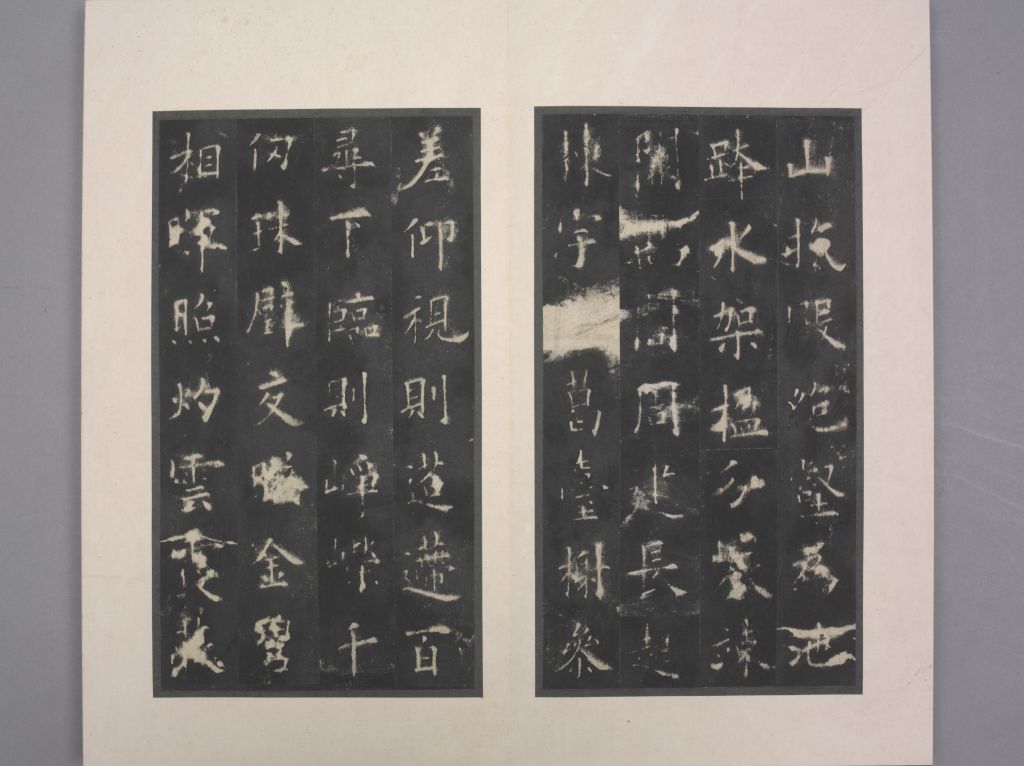 山抗殿絕壑為池
跨水架楹分巖竦
闕高閣周建長起
棟宇葛臺榭參
差仰視則迢遰百
尋下臨則崢嶸千
仞珠璧交映金碧
相暉照灼雲霞蔽